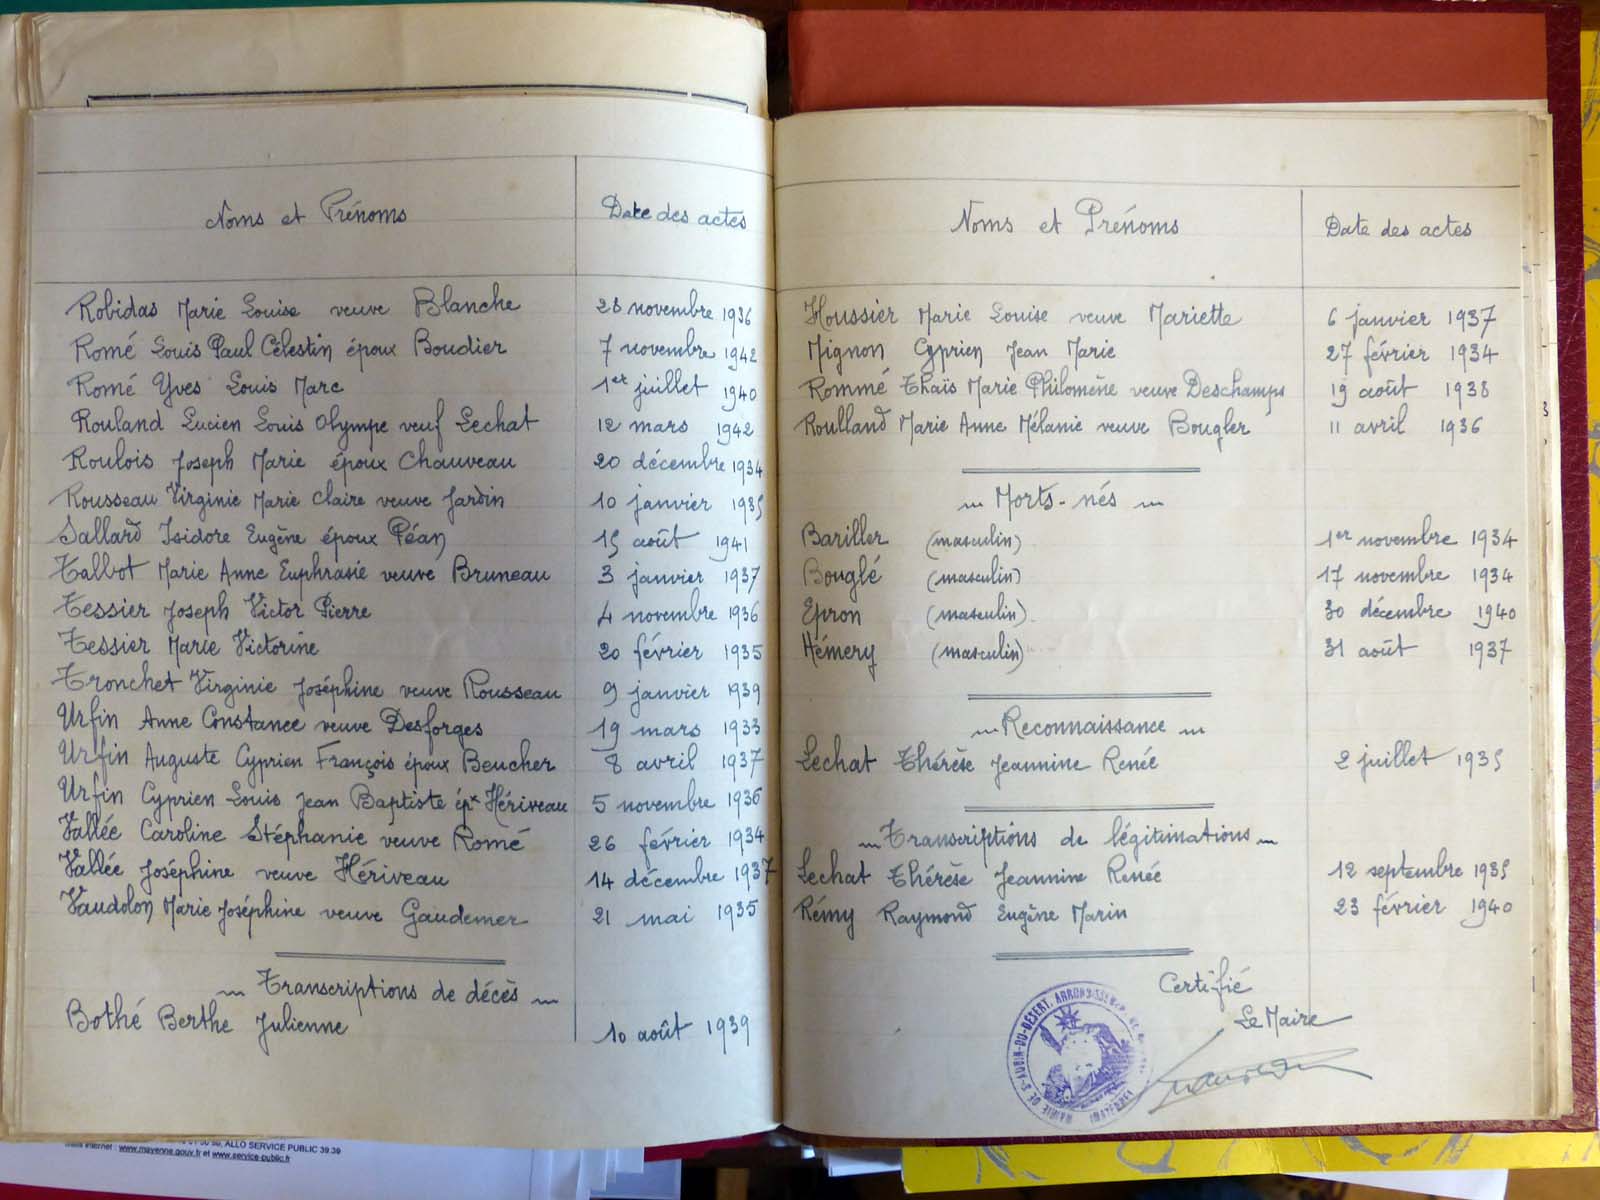 Noms et Prénoms Date des actes
Robidas Marie Louise veuve Blanche 28 novembre 1936
Romé Louis Paul Célestin époux Boudier 7 novembre 1942
Romé Yves Louis Marc 1er juillet 1940
Rouland Lucien Louis Olympe veuf Lechat 12 mars 1942
Roulois Joseph Marie époux Chauveau 20 décembre 1934
Rousseau Virginie Marie Claire veuve Jardin 10 janvier 1935
Sallard Isidore Eugène époux Péan 15 août 1941
Talbot Marie Anne Euphrasie veuve Bruneau 3 janvier 1937
Tessier Joseph Victor Pierre 4 novembre 1936
Tessier Marie Victorine 20 février 1935
Tronchet Virginie Joséphine veuve Rousseau 9 janvier 1939
Urfin Anne Constance veuve Desforges 19 mars 1933
Urfin Auguste Cyprien François époux Beucher 8 avril 1937
Urfin Cyprien Louis Jean Baptiste épx Hériveau 5 novembre 1936
Vallée Caroline Stéphanie veuve Romé 26 février 1934
Vallée Joséphine veuve Hériveau 14 décembre 1937
Vaudolon Marie Joséphine veuve Gaudemer 21 mai 1935
Transcriptions de décès
Bothé Berthe Julienne 10 août 1939
Noms et Prénoms Date des actes
Houssier Marie Louise veuve Mariette 6 janvier 1937
Mignon Cyprien Jean Marie 27 février 1934
Rommé Thaïs Marie Philomène veuve Deschamps 19 août 1938
Roulland Marie Anne Mélanie veuve Bougler 11 avril 1936
Morts-nés
Bariller (masculin) 1er novembre 1934
Bouglé (masculin) 17 novembre 1934
Epron (masculin) 30 décembre 1940
Hémery (masculin) 31 août 1937
Reconnaissance
Lechat Thérèse Jeannine Renée 2 juillet 1935
Transcriptions de légitimations
Lechat Thérèse Jeannine Renée 12 septembre 1935
Rémy Raymond Eugène Marin 23 février 1940
Certifié
Le Maire
MAIRIE DE St AUBIN-DU-DÉSERT, (MAYENNE)
ALLO SERVICE PUBLIC 39.39
internet : www.mayenne.gouv.fr et www.service-public.fr